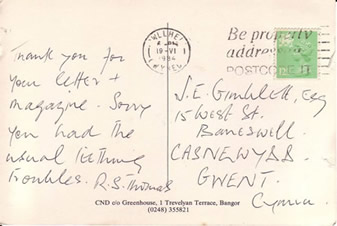 Thank you for
your letter +
magazine. Sorry
you had the
usual teething
troubles. R.S. Thomas
19-VI
1984
Be properly
addressed
POSTCODE IT
J.E. Gimblett, Esq
15 West St.
Baneswell
CASNEWYDD
GWENT.
Cymru
CND c/o Greenhouse, 1 Trevelyan Terrace, Bangor
(0248) 355821